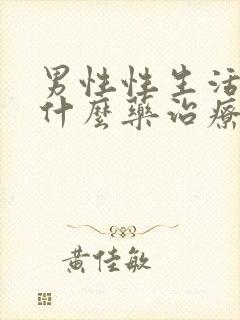 男性性生活
什麼藥治療
黃佳敏